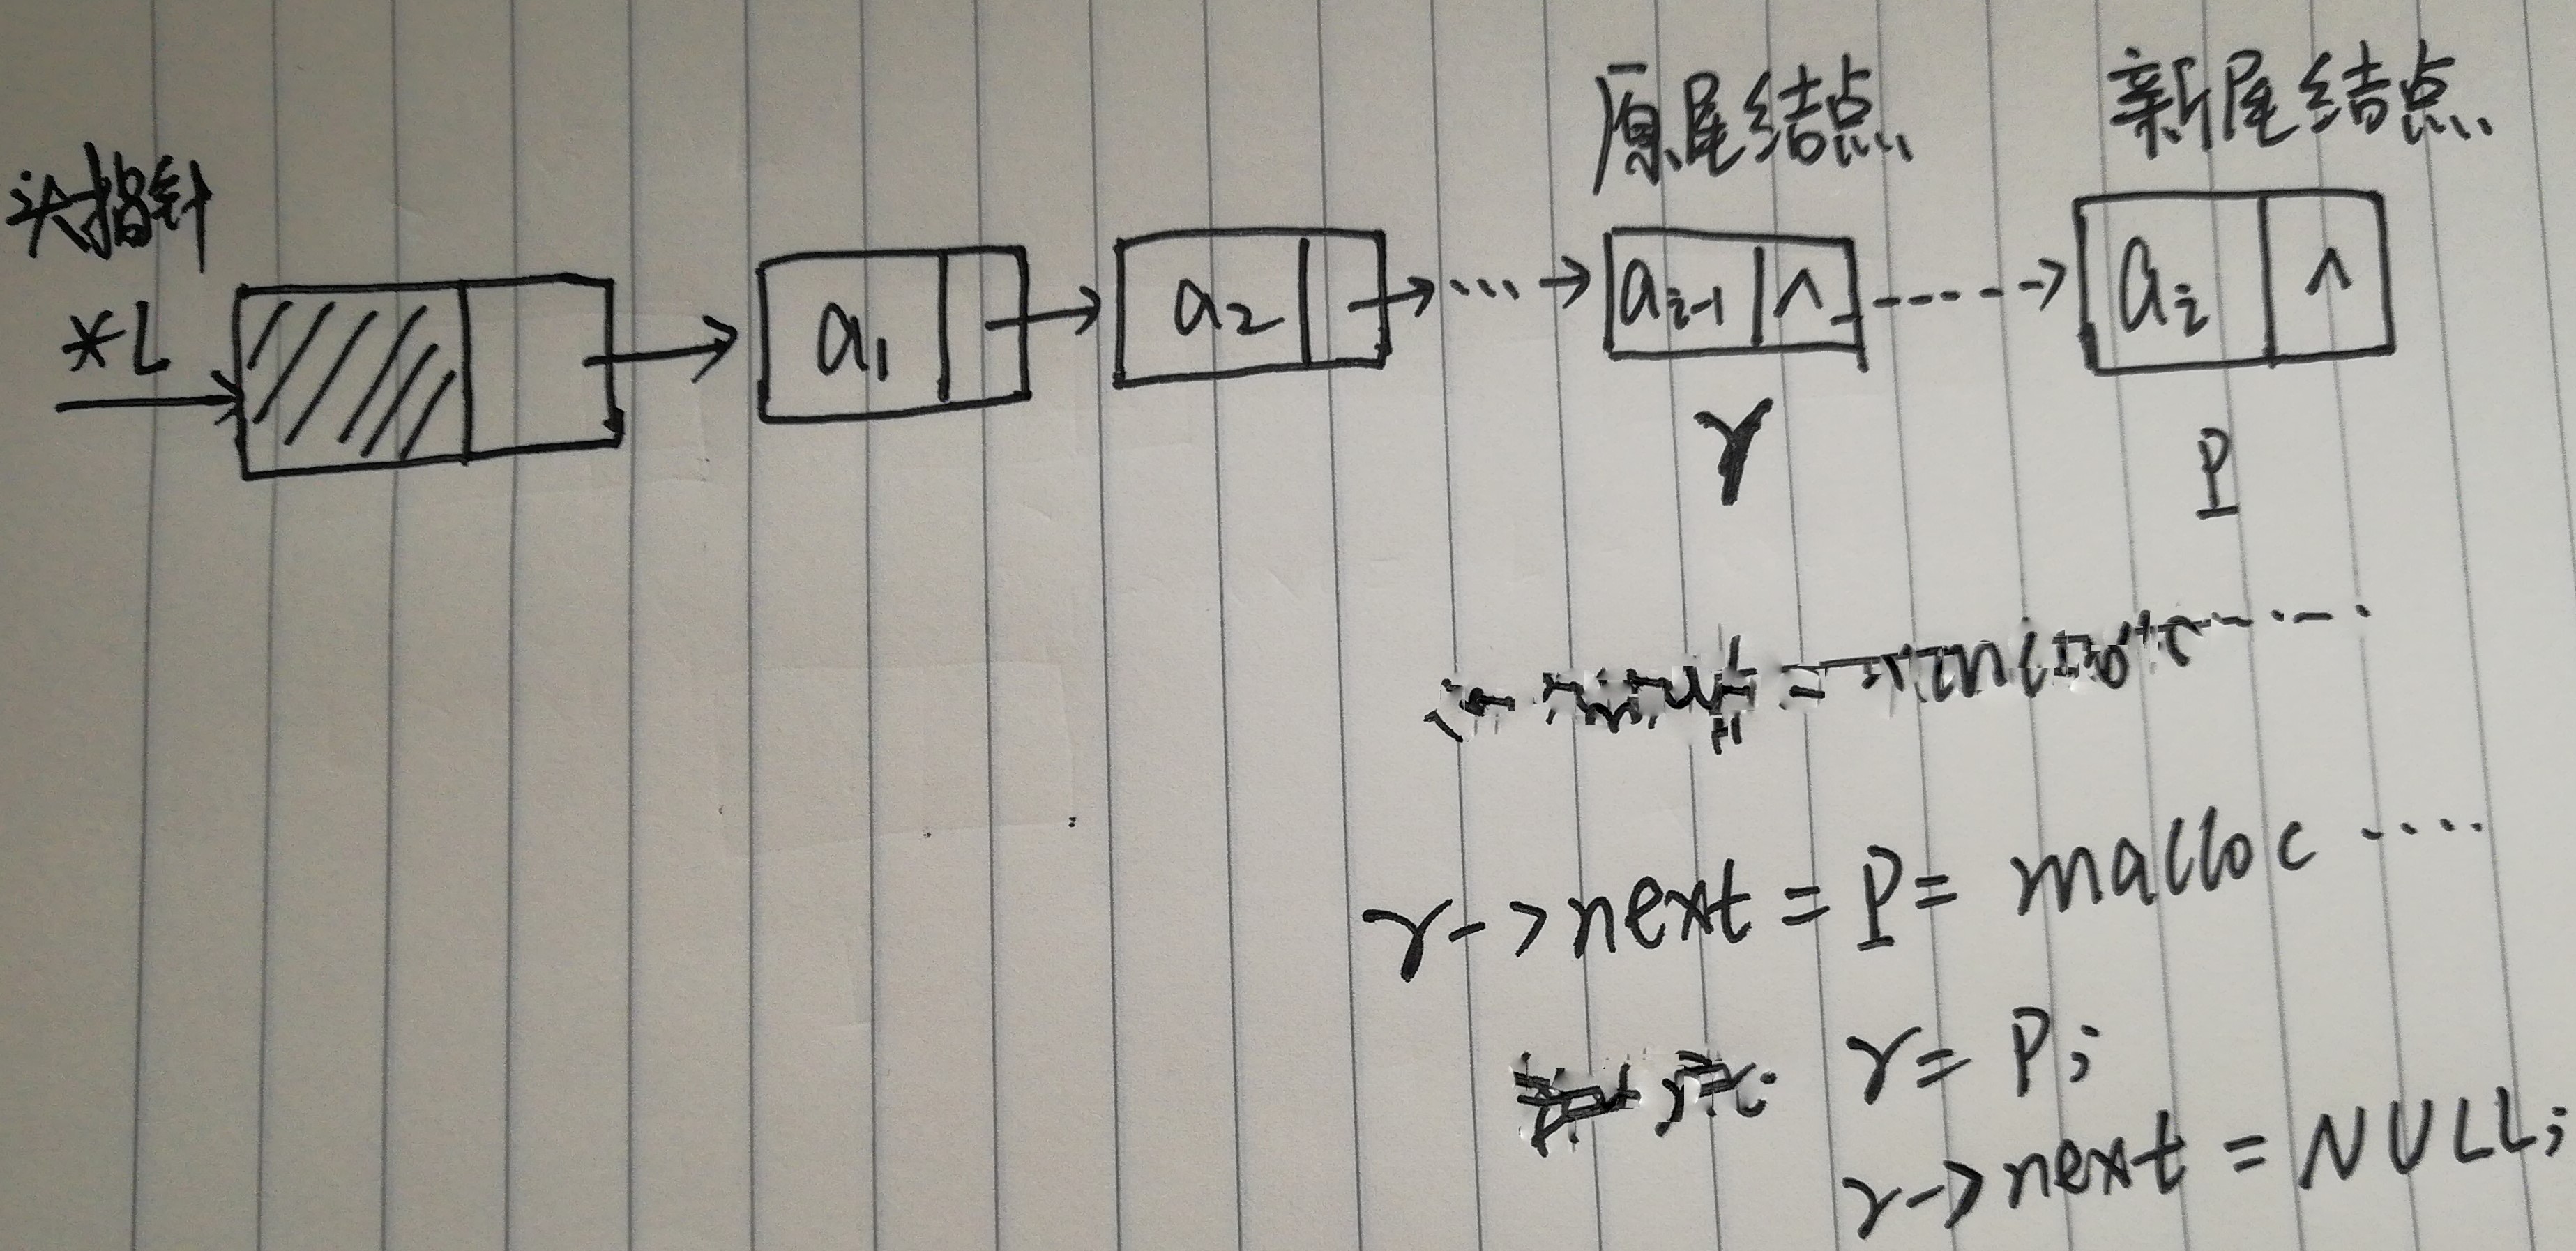 原尾结点 新尾结点
头指针
*L
a₁ a₂ ... aᵢ₋₁ ∧ aᵢ ∧
r P
r->next = P = malloc ....
r = P;
r->next = NULL;